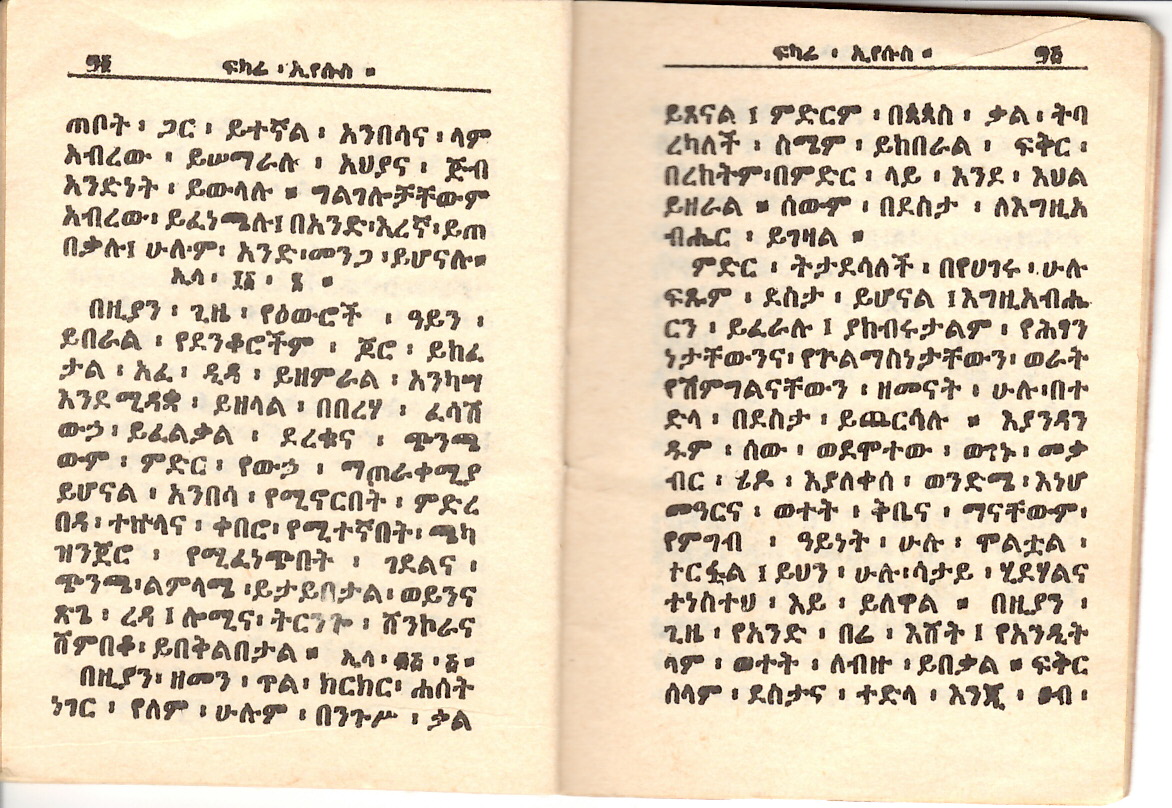 ፵፪ ፍካሬ ፡ ኢየሱስ ።
ጠቦት ፡ ጋር ፡ ይተኛል ፡ አንበሳና ፡ ላም
አብረው ፡ ይሠማራሉ ፡ አህያና ፡ ጅብ
አንድነት ፡ ይውላሉ ። ግልገሎቻቸውም
አብረው ፡ ይፈነጫሉ ፤ በአንድ ፡ እረኛ ፡ ይጠ
በቃሉ ፤ ሁሉም ፡ አንድ ፡ መንጋ ፡ ይሆናሉ ።
ኢሳ ፡ ፲፩ ፡ ፮ ።
በዚያን ፡ ጊዜ ፡ የዕውሮች ፡ ዓይን ፡
ይበራል ፡ የደንቆሮችም ፡ ጆሮ ፡ ይከፈ
ታል ፡ አፈ ፡ ዲዳ ፡ ይዘምራል ፡ አንካሣ
እንደሚዳቋ ፡ ይዘላል ፡ በበረሃ ፡ ፈሳሽ
ውኃ ፡ ይፈልቃል ፡ ደረቁና ፡ ጭንጫ
ውም ፡ ምድር ፡ የውኃ ፡ ማጠራቀሚያ
ይሆናል ፡ አንበሳ ፡ የሚኖርበት ፡ ምድረ
በዳ ፡ ተኵላና ፡ ቀበሮ ፡ የሚተኛበት ፡ ጫካ
ዝንጀሮ ፡ የሚፈነጭበት ፡ ገደልና ፡
ጭንጫ ፡ ልምላሜ ፡ ይታይበታል ፡ ወይንና
ጽጌ ፡ ረዳ ፤ ሎሚና ፡ ትርንጐ ፡ ሸንኮራና
ሸምበቆ ፡ ይበቅልበታል ። ኢሳ ፡ ፴፭ ፡ ፩ ።
በዚያን ፡ ዘመን ፡ ጥል ፡ ክርክር ፡ ሐሰት
ነገር ፡ የለም ፡ ሁሉም ፡ በንጉሥ ፡ ቃል
ፍካሬ ፡ ኢየሱስ ።
ይጸናል ፤ ምድርም ፡ በጳጳስ ፡ ቃል ፡ ትባ
ረካለች ፡ ስሜም ፡ ይከበራል ፡ ፍቅር ፡
በረከትም ፡ በምድር ፡ ላይ ፡ እንደ ፡ እህል
ይዘራል ። ሰውም ፡ በደስታ ፡ ለእግዚአ
ብሔር ፡ ይገዛል ።
ምድር ፡ ትታደሳለች ፡ በየሀገሩ ፡ ሁሉ
ፍጹም ፡ ደስታ ፡ ይሆናል ፤ እግዚአብሔ
ርን ፡ ይፈራሉ ፤ ያከብሩታልም ፡ የሕፃን
ነታቸውንና ፡ የጕልማስነታቸውን ፡ ወራት
የሽምግልናቸውን ፡ ዘመናት ፡ ሁሉ ፡ በተ
ድላ ፡ በደስታ ፡ ይጨርሳሉ ። እያንዳን
ዱም ፡ ሰው ፡ ወደሞተው ፡ ወገኑ ፡ መቃ
ብር ፡ ሂዶ ፡ እያለቀሰ ፡ ወንድሜ ፡ እነሆ
መዓርና ፡ ወተት ፡ ቅቤና ፡ ማናቸውም ፡
የምግብ ፡ ዓይነት ፡ ሁሉ ፡ ሞልቷል ፡
ተርፏል ፤ ይህን ፡ ሁሉ ፡ ሳታይ ፡ ሂደሃልና
ተነስተህ ፡ እይ ፡ ይለዋል ። በዚያን ፡
ጊዜ ፡ የአንድ ፡ በሬ ፡ እሸት ፤ የአንዲት
ላም ፡ ወተት ፡ ለብዙ ፡ ይበቃል ። ፍቅር
ሰላም ፡ ደስታና ፡ ተድላ ፡ እንጂ ፡